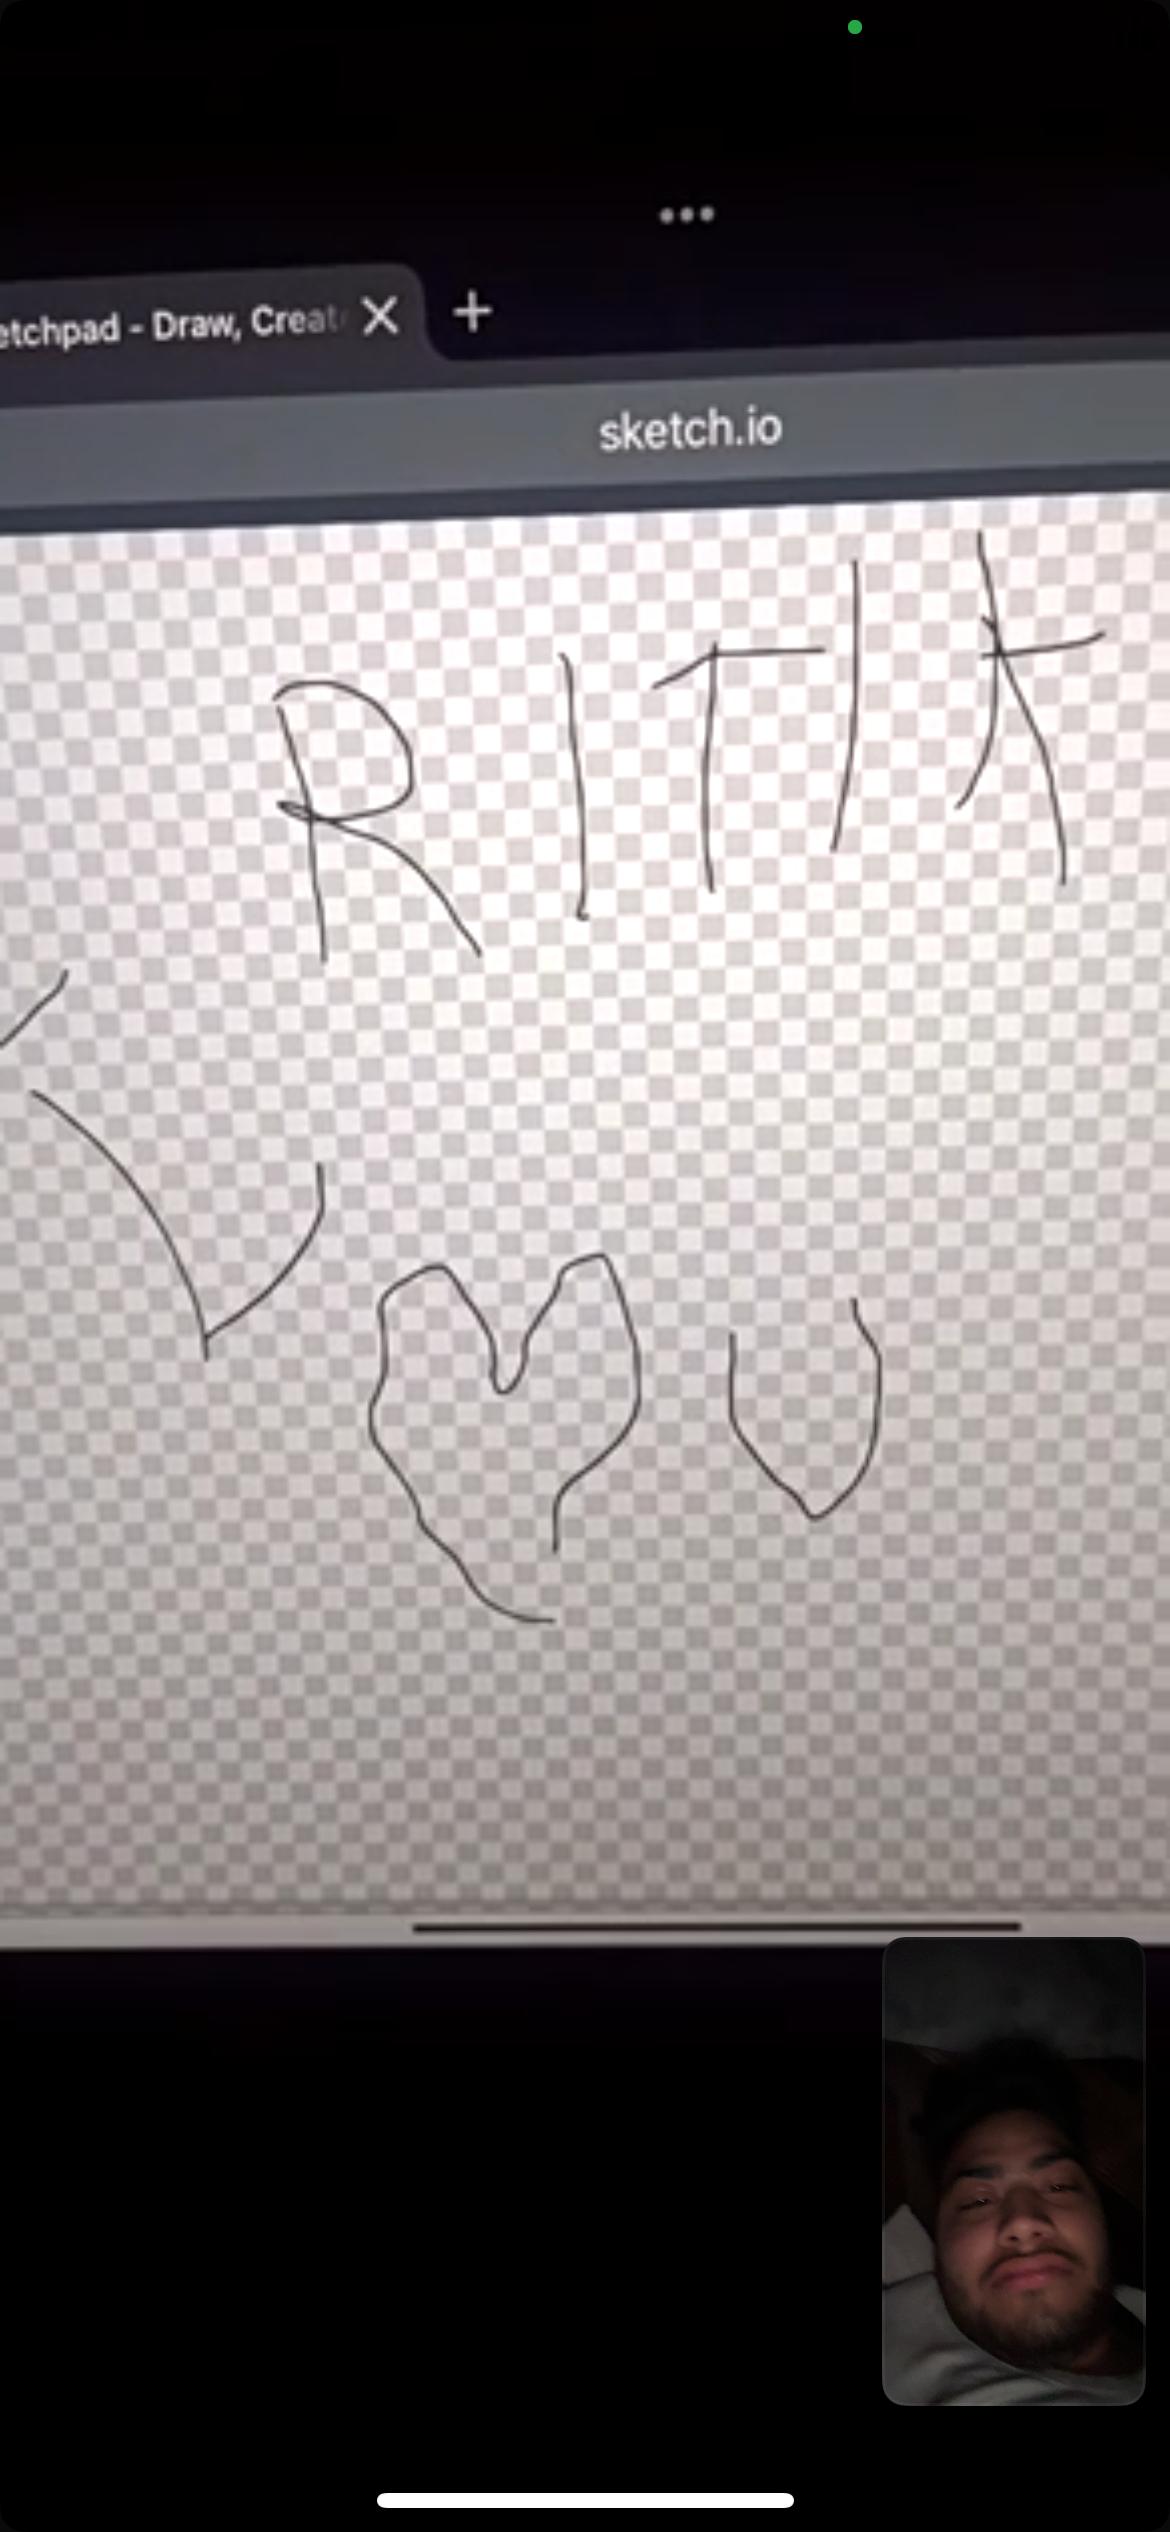 etchpad - Draw, Creat
sketch.io
RITIK
U